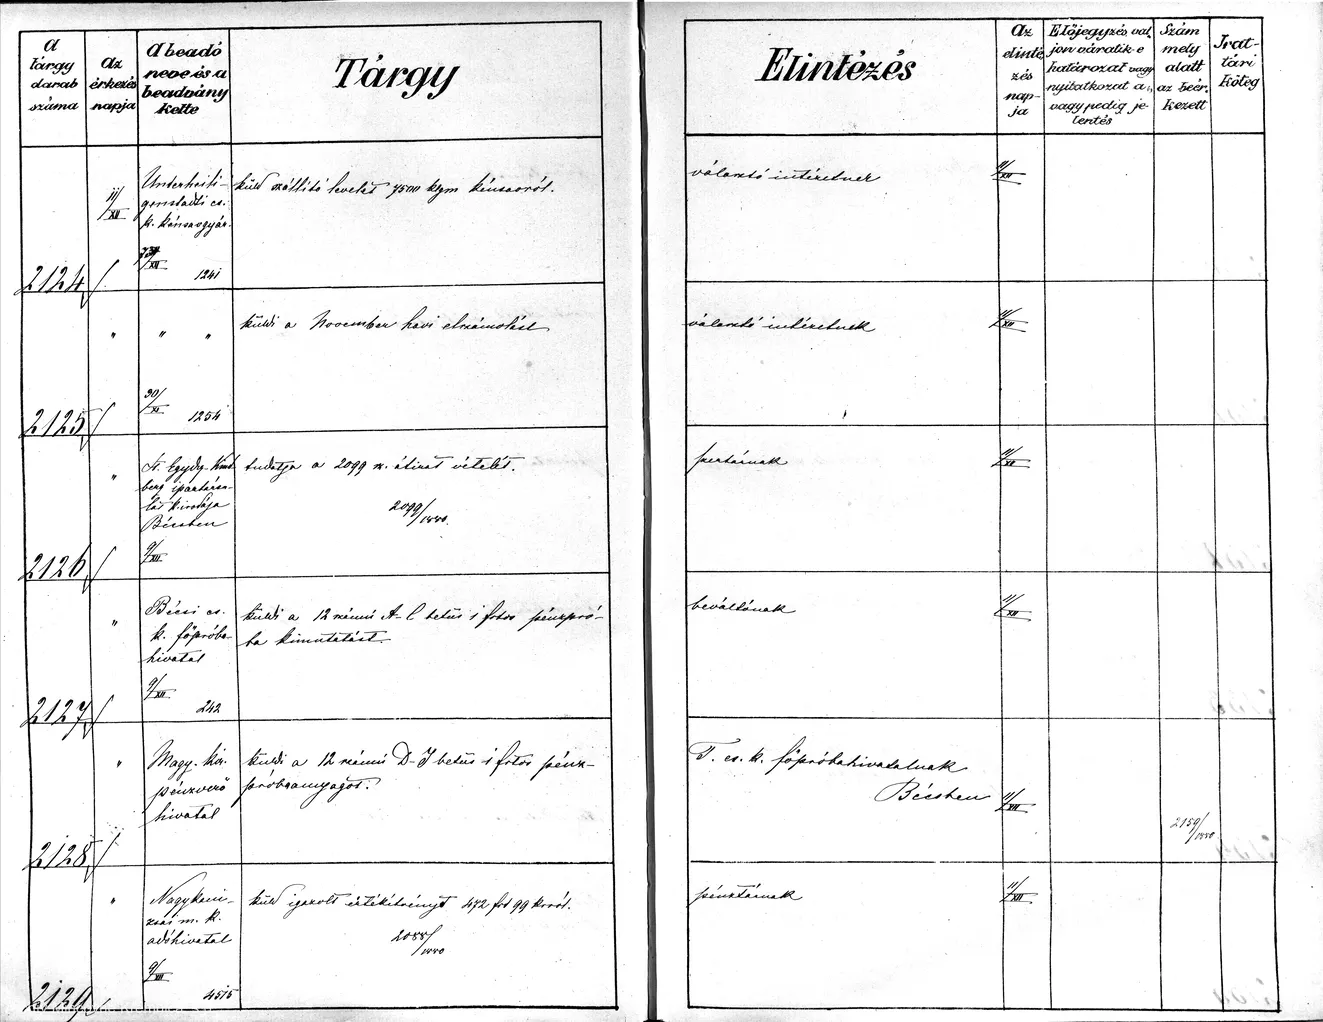 A tárgy darab száma
Az érkezés napja
A beadó neve és a beadvány kelte
Tárgy
Elintézés
Az elintézés napja
Előjegyzés valjon váratik e határozat vagy nyilatkozat a, vagy pedig jelentés
Szám mely alatt az beérkezett
Irattári köteg
2124
11/XII
k. kénsavgyár
XII
1241
küld szállitó levelet 7500 kgm kénsavról.
választó intézetnek
11/XII
2125
" " "
30/XI
1254
küldi a November havi elszámolást
választó intézetnek
11/XII
2126
"
St. Egydy-Kind
berg ipartársu-
lat irodája
Bécsben
9/XII
tudatja a 2099 sz. átirat vételét.
2099/1880.
pertárnak
11/XII
2127
"
Bécsi cs.
k. főpróba-
hivatal
9/XII
242
küldi a 12 számú A-C betűs 1 frtos pénzpró-
ba kimutatást
beváltónak
11/XII
2128
"
Magy. kir.
pénzverő
hivatal
küldi a 12 számú D-J betűs 1 frtos pénz-
próbaanyagot.
T. cs. k. főpróbahivatalnak
Bécsben
11/XII
2159/1880
2129
"
Nagykani-
zsai m. k.
adóhivatal
9/XII
4515
küld igazolt értékítvényt 472 frt 99 król.
2088/1880
pénztárnak
11/XII